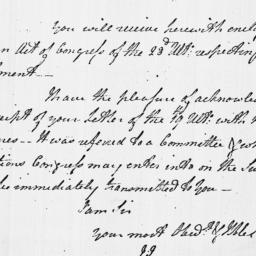 You will receive herewith encl
an Act of Congress of the 23d Ult: respecting
ment —
I have the pleasure of acknowle
ceipt of your Letter of the 19 Ult: with
res — It was refered to a Committee &
tions Congress may enter into on the Su
be immediately transmitted to you —
I am Sir
your most Obedt. & Hble